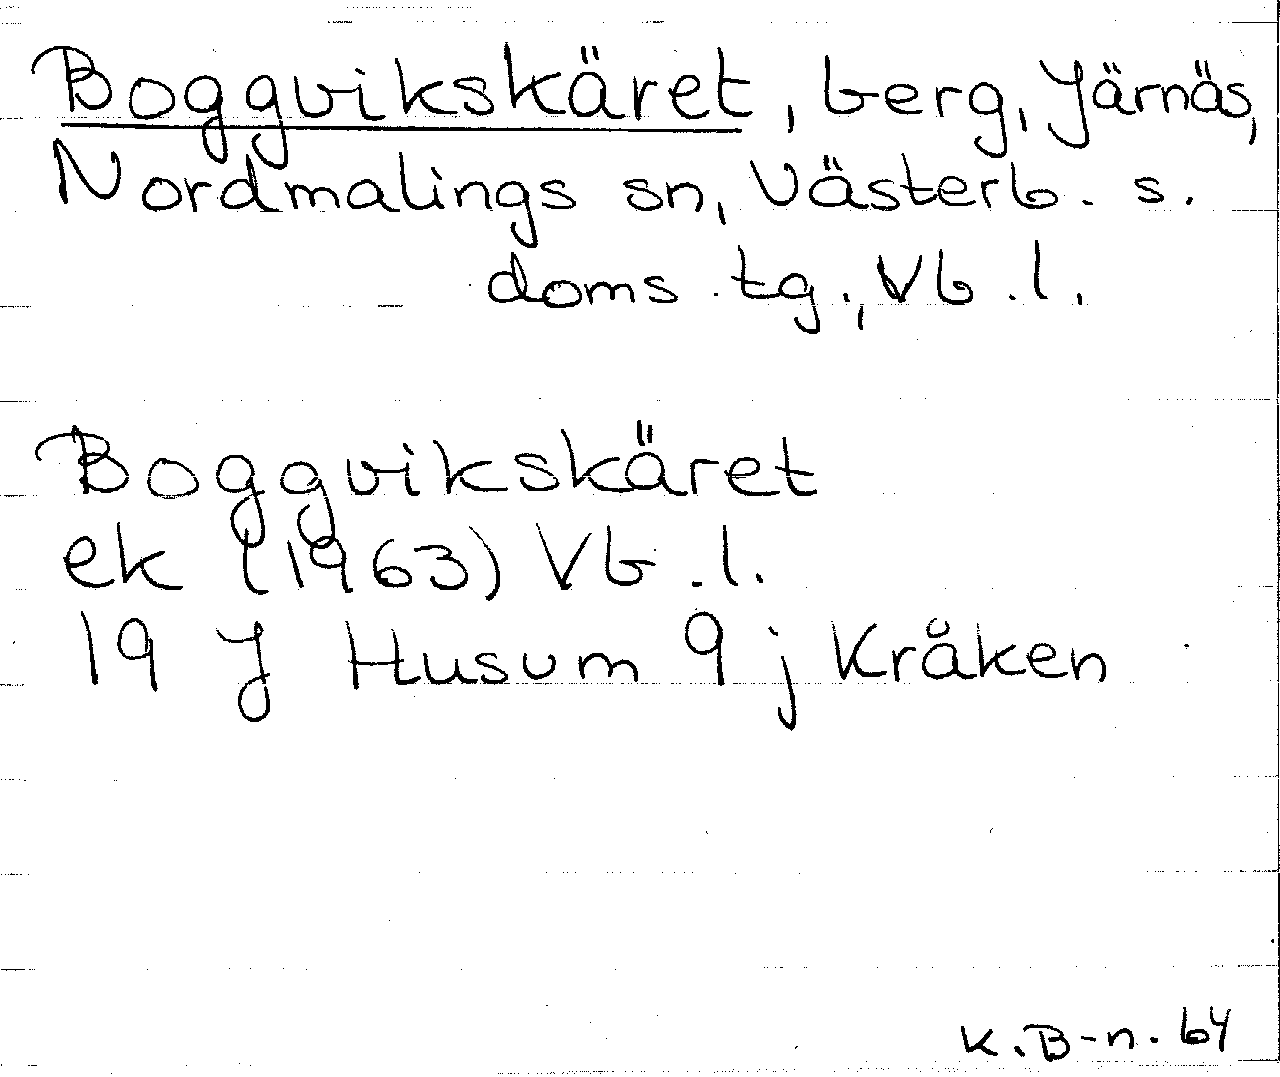 Boggvikskäret, berg, Järnäs,
Nordmalings sn, Västerb. s.
doms. tg., Vb. l.
Boggvikskäret
ek (1963) Vb. l.
19 J Husum 9 j Kråken
K. B-n. 64